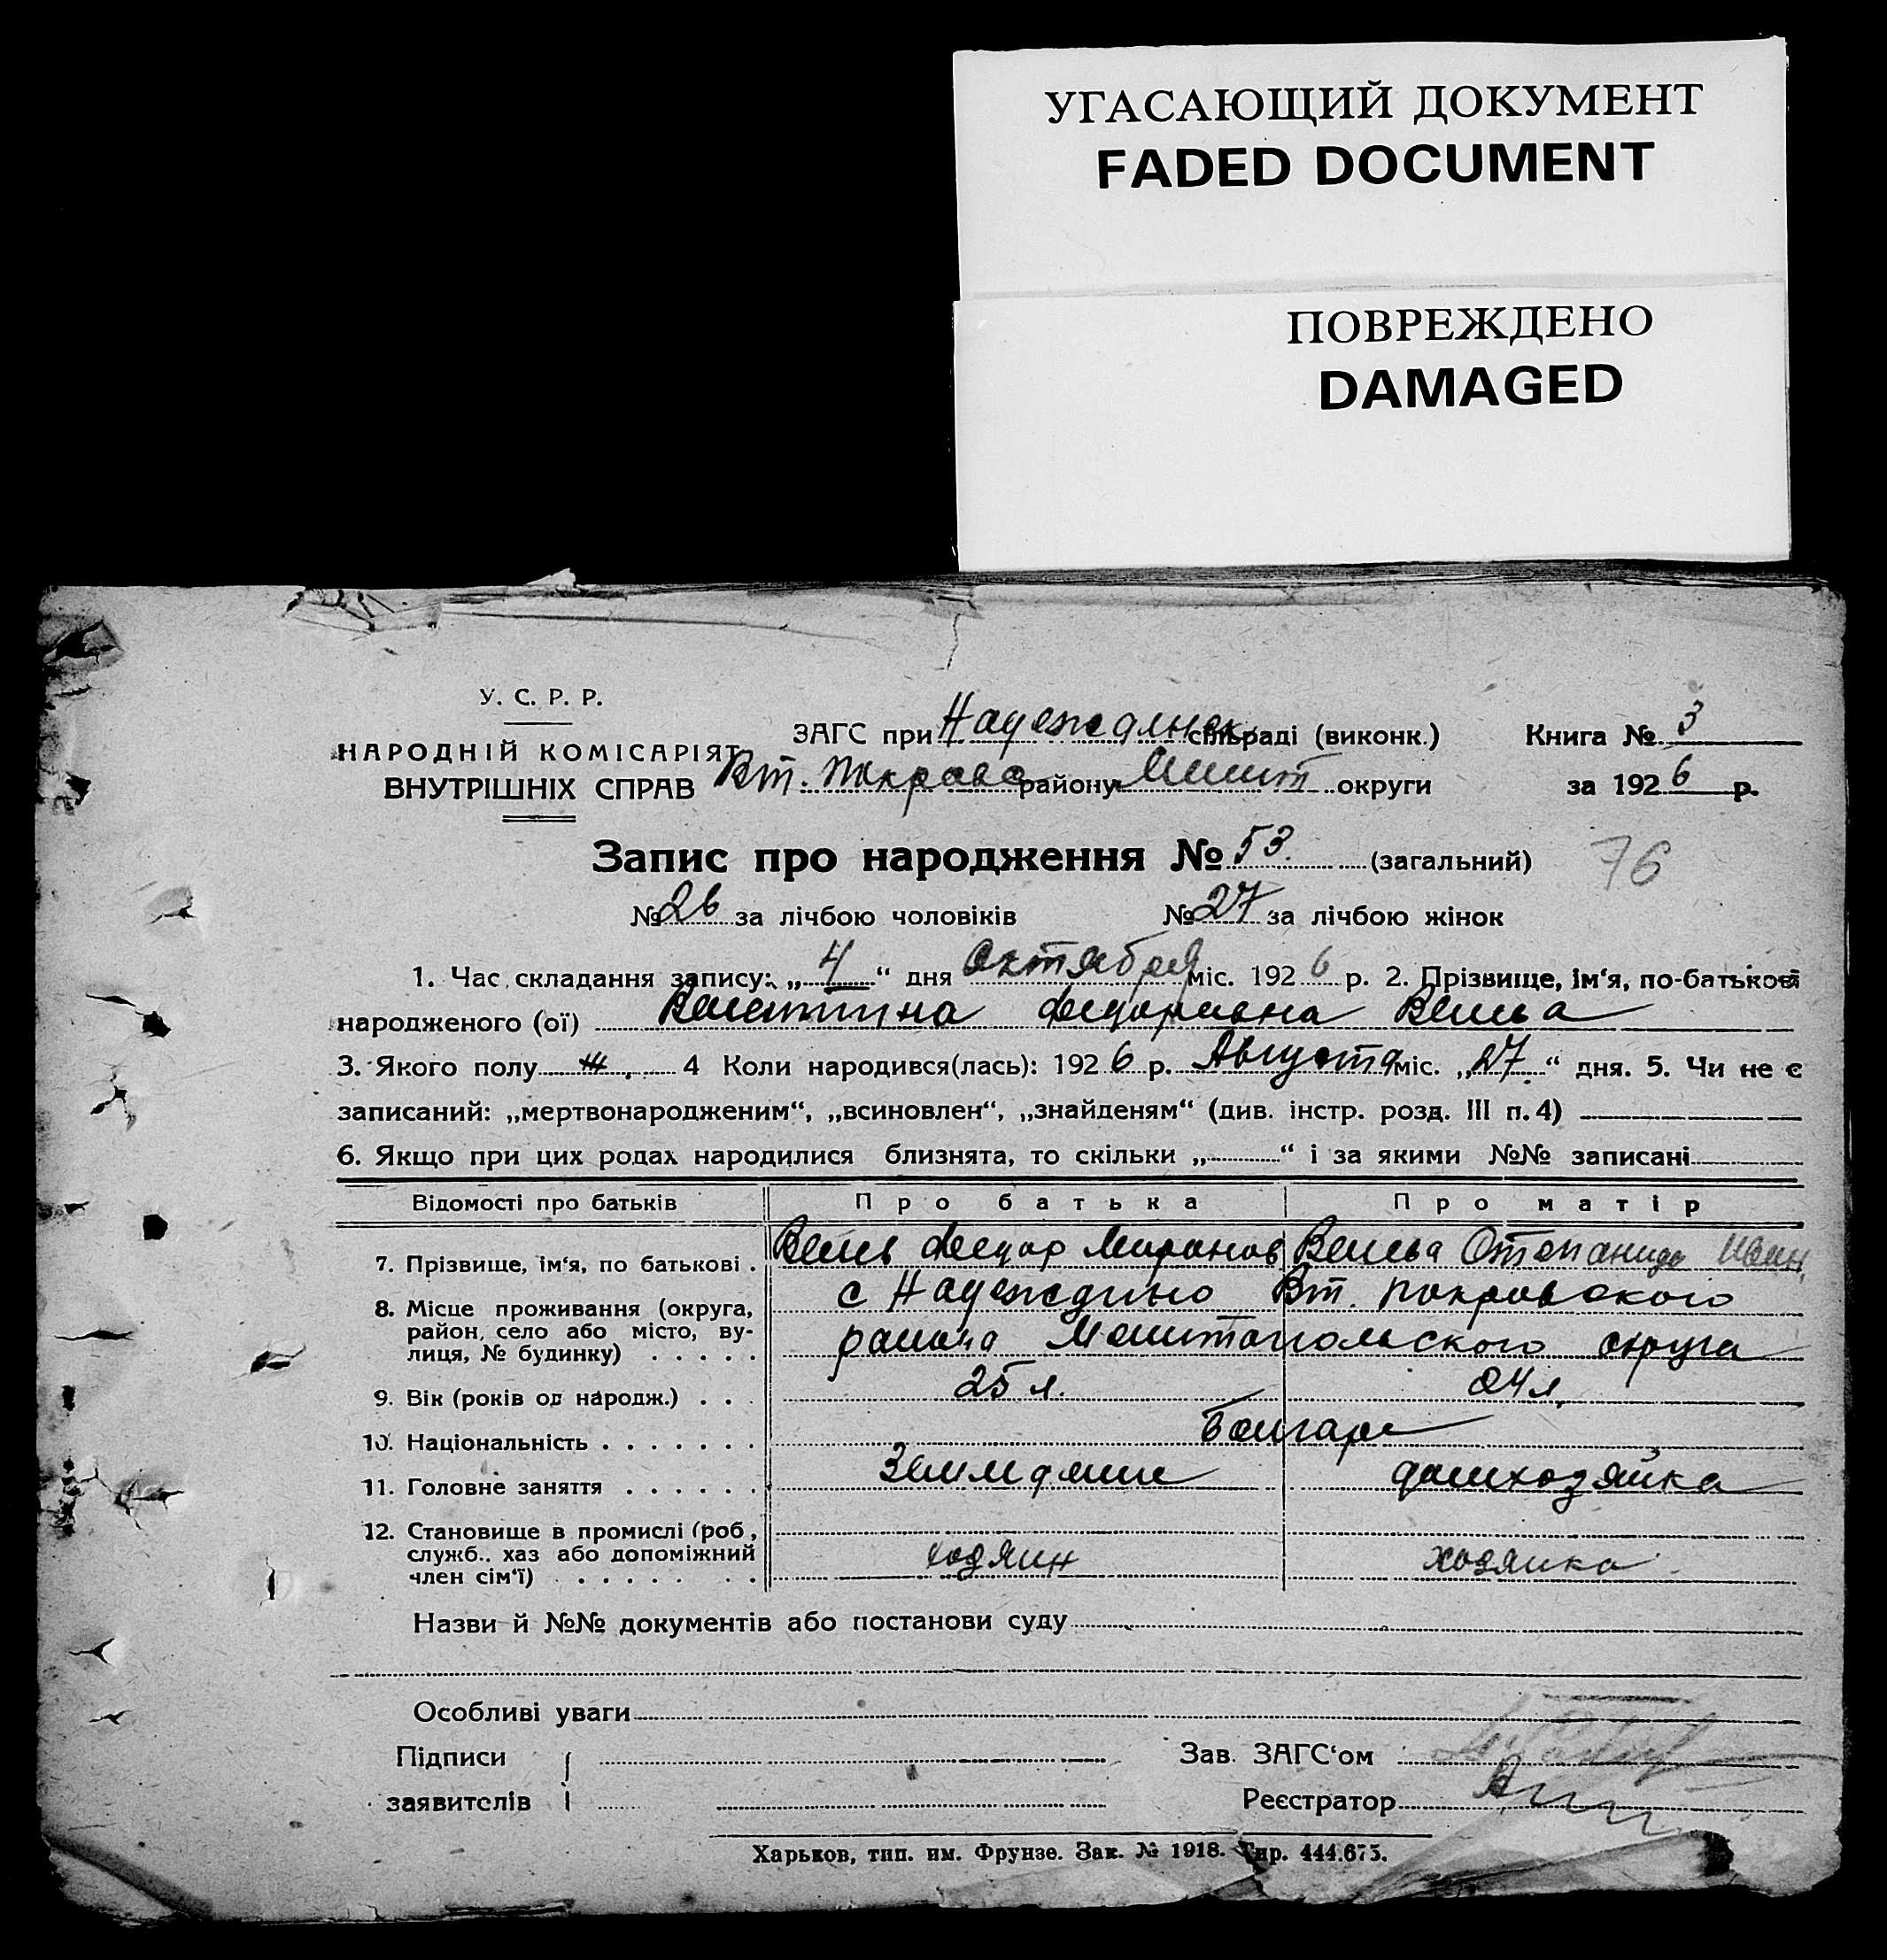 УГАСАЮЩИЙ ДОКУМЕНТ
FADED DOCUMENT
ПОВРЕЖДЕНО
DAMAGED
У. С. Р. Р.
НАРОДНІЙ КОМІСАРІЯТ
ВНУТРІШНІХ СПРАВ
ЗАГС при Надеждинск сільраді (виконк.)
Вт. Покровс району Мелит округи
Книга № 3
за 1926 р.
Запис про народження № 53. (загальний)
76
№ 26 за лічбою чоловіків № 27 за лічбою жінок
1. Час складання запису: „4“ дня Октября міс. 1926 р. 2. Прізвище, ім‘я, по-батькові
народженого (ої) Валентина Федоровна
3. Якого полу ж. 4 Коли народився(лась): 1926 р. Августа міс. „27.“ дня. 5. Чи не є
записаний: „мертвонародженим“, „всиновлен“, „знайденям“ (див. інстр. розд. III п. 4)
6. Якщо при цих родах народилися близнята, то скільки „ “ і за якими №№ записані
Відомості про батьків Про батька Про матір
7. Прізвище, ім‘я, по батькові . Федор Миронов Степанида Иван.
8. Місце проживання (округа, район, село або місто, ву-лиця, № будинку) . . . . . с Надеждино Вт. Покровского
района Мелитопольского округа
9. Вік (років од народж.) . . . 25 л. 24 л.
10. Національність . . . . . . . Болгаре
11. Головне заняття . . . . . . домхозяйка
12. Становище в промислі (роб., служб., хаз або допоміжний
член сім‘ї) . . . . . . . хозяин хозяйка
Назви й №№ документів або постанови суду
Особливі уваги
Підписи Зав. ЗАГС‘ом
заявителів Реєстратор
Харьков, тип. им. Фрунзе. Зак. № 1918. Тир. 444.675.